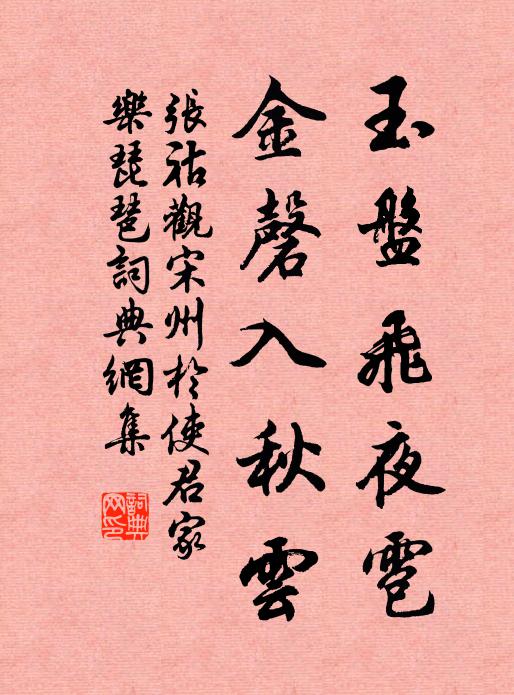 玉盤飛夜雹
金磬入秋雲
張祜觀宋州於使君家
樂琵琶詞典網集
詞典
网印